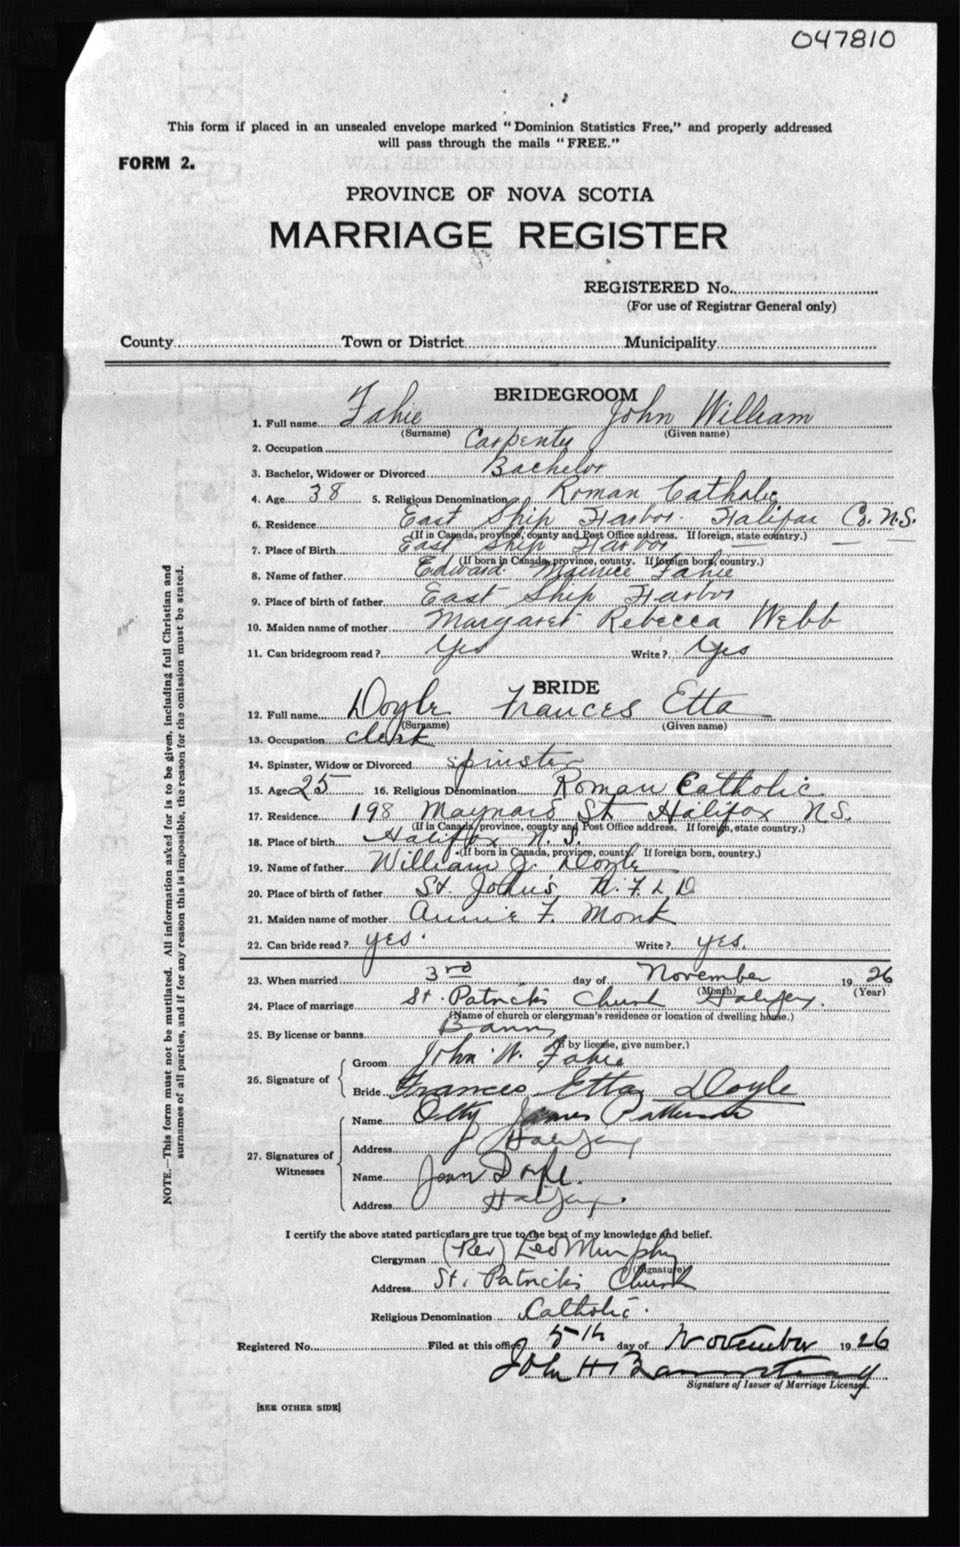 047810
This form if placed in an unsealed envelope marked "Dominion Statistics Free," and properly addressed
will pass through the mails "FREE."
FORM 2.
PROVINCE OF NOVA SCOTIA
MARRIAGE REGISTER
REGISTERED No.
(For use of Registrar General only)
County Town or District Municipality
BRIDEGROOM
1. Full name Fahie John William
(Surname) (Given name)
2. Occupation Carpenter
3. Bachelor, Widower or Divorced Bachelor
4. Age 38 5. Religious Denomination Roman Catholic
6. Residence East Ship Harbor Halifax Co. N.S.
(If in Canada, province, county and Post Office address. If foreign, state country.)
7. Place of Birth East Ship Harbor
(If born in Canada, province, county. If foreign born, country.)
8. Name of father Edward Maurice Fahie
9. Place of birth of father East Ship Harbor
10. Maiden name of mother Margaret Rebecca Webb
11. Can bridegroom read? Yes Write? Yes
BRIDE
12. Full name Doyle Frances Etta
(Surname) (Given name)
13. Occupation clerk
14. Spinster, Widow or Divorced spinster
15. Age 25 16. Religious Denomination Roman Catholic
17. Residence 198 Maynard St. Halifax N.S.
(If in Canada, province, county and Post Office address. If foreign, state country.)
18. Place of birth Halifax N.S.
(If born in Canada, province, county. If foreign born, country.)
19. Name of father William J. Doyle
20. Place of birth of father St. John's N.F.L.D
21. Maiden name of mother Annie F. Monk
22. Can bride read? yes. Write? yes.
23. When married 3rd day of November 1926
(Month) (Year)
24. Place of marriage St. Patrick's Church Halifax.
(Name of church or clergyman's residence or location of dwelling house.)
25. By license or banns Banns
(If by license, give number.)
26. Signature of
Groom John W. Fahie
Bride Frances Etta Doyle
27. Signatures of Witnesses
Name James Patterson
Address Halifax
Name Doyle.
Address Halifax.
I certify the above stated particulars are true to the best of my knowledge and belief.
Clergyman (Rev) Leo Murphy
(Signature)
Address St. Patrick's Church
Religious Denomination Catholic.
Registered No. Filed at this office 5th day of November 1926
John H
Signature of Issuer of Marriage Licenses.
[SEE OTHER SIDE]
NOTE.—This form must not be mutilated. All information asked for is to be given, including full Christian and
surnames of all parties, and if for any reason this is impossible, the reason for the omission must be stated.